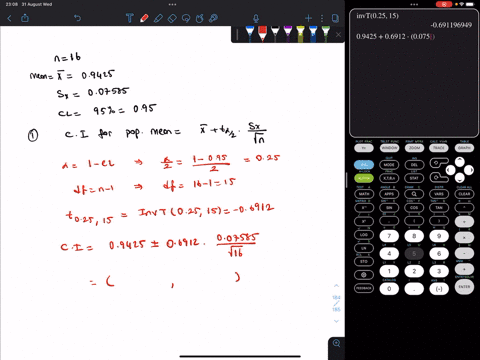 23:08 31 August Wed
n=16
mean= x̄ = 0.9425
Sx = 0.07585
CL = 95% = 0.95
① C.I for pop. mean = x̄ + tα/2 . Sx/√n
α = 1-CL ⇒ α/2 = (1-0.95)/2 = 0.25
df = n-1 ⇒ df = 16-1 = 15
t0.25, 15 = InvT (0.25, 15) = -0.6912
C.I = 0.9425 ± 0.6912 . 0.07585/√16
= ( , )
invT(0.25, 15)
-0.691196949
0.9425 + 0.6912 · (0.075
WINDOW ZOOM TRACE GRAPH
DEL
ALPHA X,T,θ,n STAT
MATH APPS PRGM VARS CLEAR
SIN COS TAN ^
LOG 7 8 9
LN 4 5 6
STO 1 2 3
FEEDBACK 0 . (-) ENTER
184
186